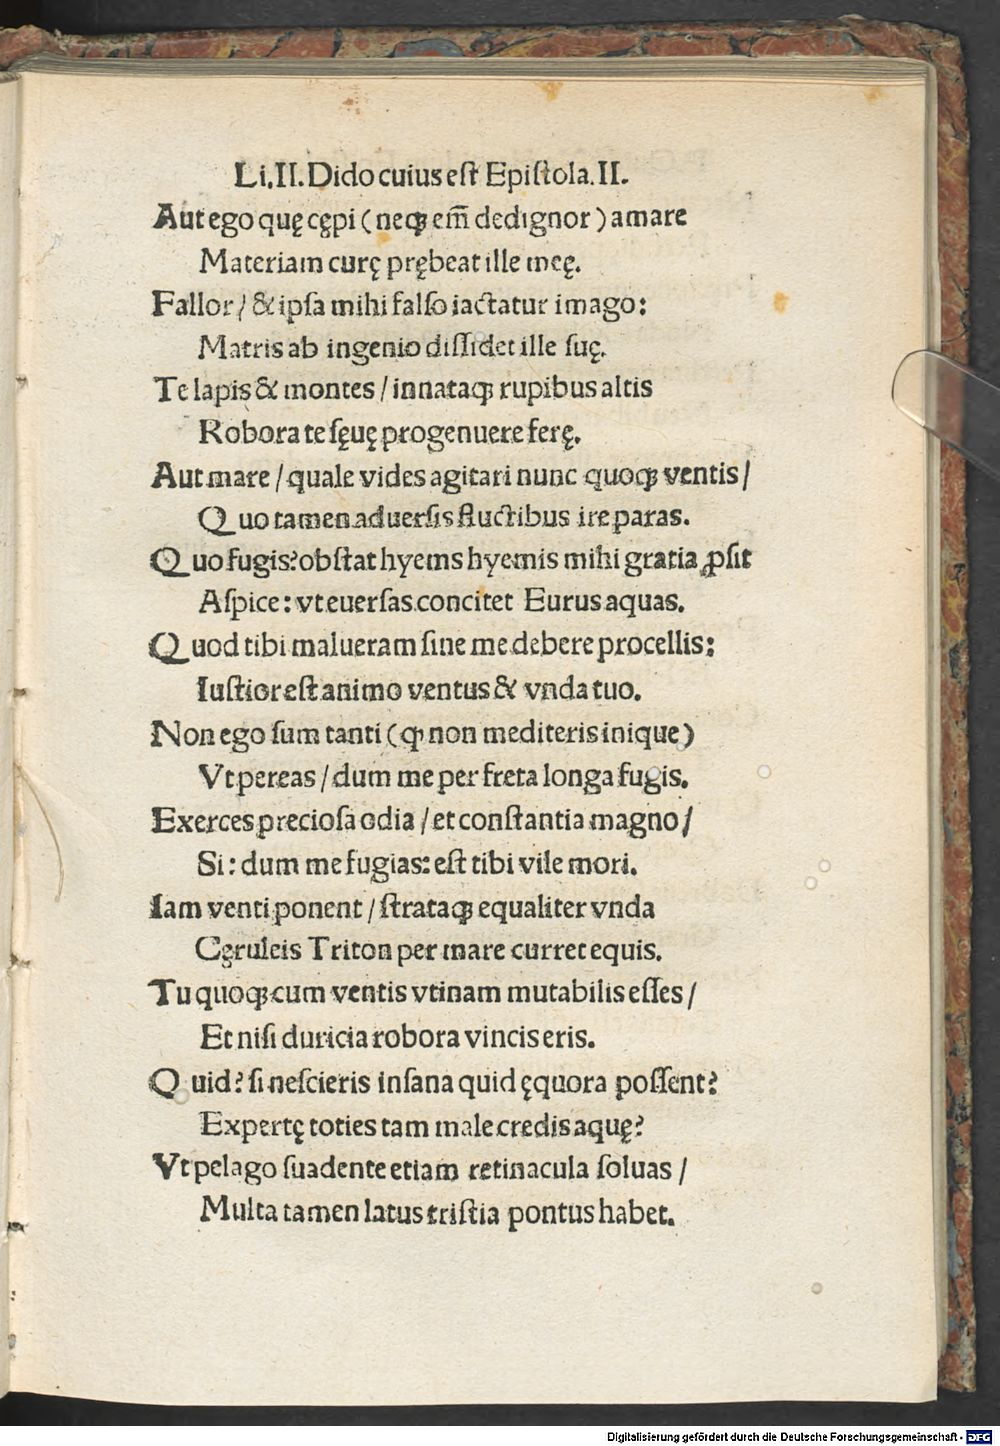 Li.II.Dido cuius eſt Epiſtola.II.
Aut ego quę cępi (neqꝫ em̃ dedignor) amare
Materiam curę prębeat ille meę.
Fallor/ & ipſa mihi falſo iactatur imago:
Matris ab ingenio diſſidet ille ſuę.
Te lapis & montes / innataqꝫ rupibus altis
Robora te ſęuę progenuere ferę.
Aut mare / quale vides agitari nunc quoqꝫ ventis /
Quo tamen aduerſis fluctibus ire paras.
Quo fugis? obſtat hyems hyemis mihi gratia ꝓſit
Aſpice: vt euerſas concitet Eurus aquas.
Quod tibi malueram ſine me debere procellis:
Iuſtior eſt animo ventus & vnda tuo.
Non ego ſum tanti (ꝙ non mediteris inique)
Vt pereas / dum me per freta longa fugis.
Exerces precioſa odia / et conſtantia magno /
Si: dum me fugias: eſt tibi vile mori.
Iam venti ponent / ſtrataqꝫ equaliter vnda
Cęruleis Triton per mare curret equis.
Tu quoqꝫ cum ventis vtinam mutabilis eſſes /
Et niſi duricia robora vincis eris.
Quid? ſi neſcieris inſana quid ęquora poſſent?
Expertę toties tam male credis aquę?
Vt pelago ſuadente etiam retinacula ſoluas /
Multa tamen latus triſtia pontus habet.
Digitalisierung gefördert durch die Deutsche Forschungsgemeinschaft - DFG